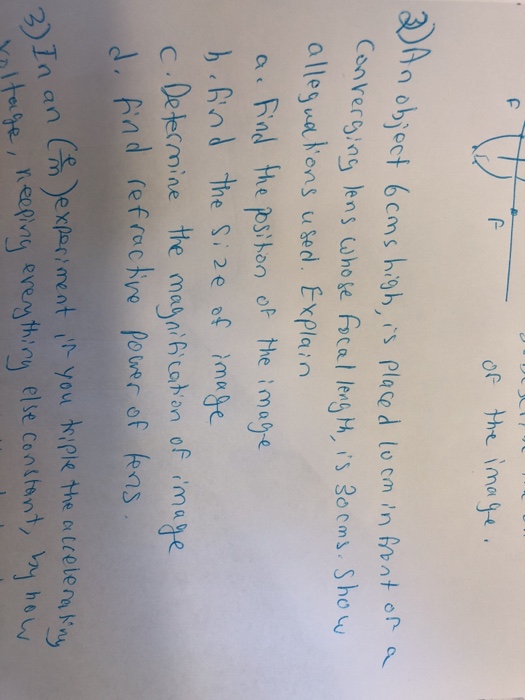 F
F
of the image.
2) An object 6cms high, is placed 10cm in front of a
Converging lens whose focal length, is 30cms. Show
all equations used. Explain
a. Find the position of the image
b. find the size of image
c. Determine the magnification of image
d. find refractive power of lens.
3) In an (e/m) experiment if you triple the accelerating
Voltage, keeping everything else constant, by how